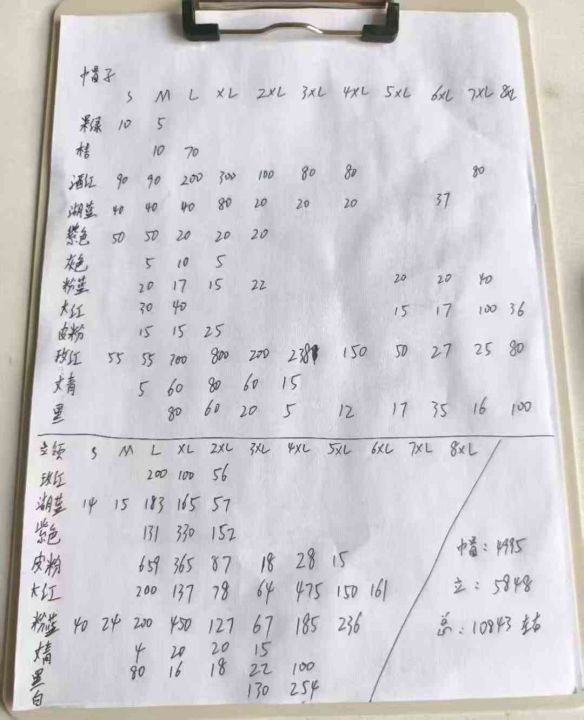 巾冒子
S M L XL 2XL 3XL 4XL 5XL 6XL 7XL 8XL
果绿 10 5
桔 10 70
酒红 90 90 200 300 100 80 80 80
湖蓝 40 40 40 80 20 20 20 37
紫色 50 50 20 20 20
灰色 5 10 5
粉蓝 20 17 15 22 20 20 40
大红 30 40 15 17 100 36
皮粉 15 15 25
玫红 55 55 700 800 200 238 150 50 27 25 80
丈青 5 60 80 60 15
黑 80 60 20 5 12 17 35 16 100
立领 S M L XL 2XL 3XL 4XL 5XL 6XL 7XL 8XL
玫红 200 100 56
湖蓝 14 15 183 165 57
紫色 131 330 152
皮粉 659 365 87 18 28 15
大红 200 137 78 64 475 150 161
粉蓝 40 24 200 450 127 67 185 236
丈青 4 20 20 15
黑 80 16 18 22 100
白 130 254
巾冒：4995
立：5848
总：10843 左右